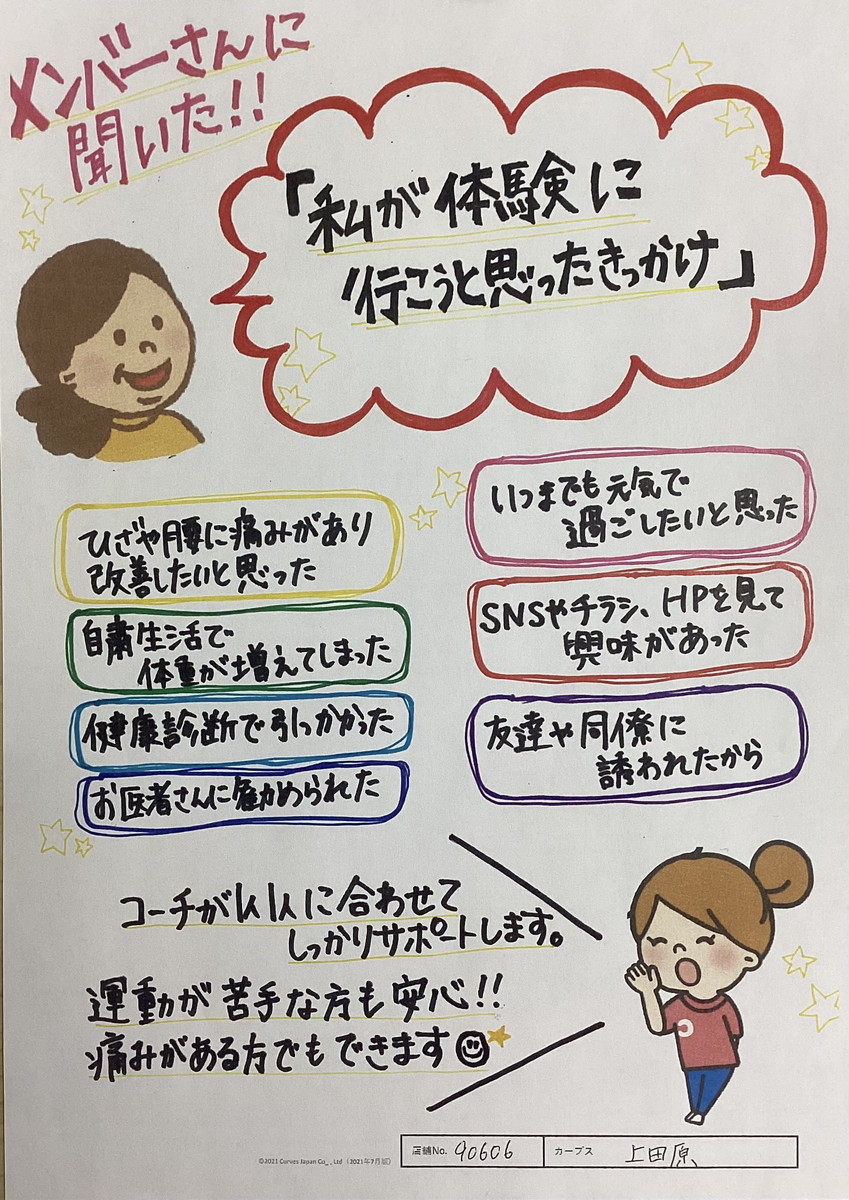 メンバーさんに
聞いた!!
「私が体験に
行こうと思ったきっかけ」
ひざや腰に痛みがあり
改善したいと思った
自粛生活で
体重が増えてしまった
健康診断で引っかかった
お医者さんに勧められた
いつまでも元気で
過ごしたいと思った
SNSやチラシ、HPを見て
興味があった
友達や同僚に
誘われたから
コーチが1人1人に合わせて
しっかりサポートします。
運動が苦手な方も安心!!
痛みがある方でもできます
©2021 Curves Japan Co., Ltd (2021年7月版)
店舗No. 90606 カーブス 上田原